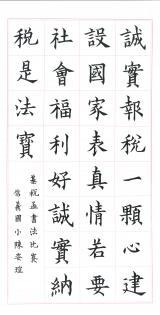 誠實報稅一顆心建
設國家表真情若要
社會福利好誠實納
稅是法寶
基稅盃書法比賽
信義國小陳姿瑄